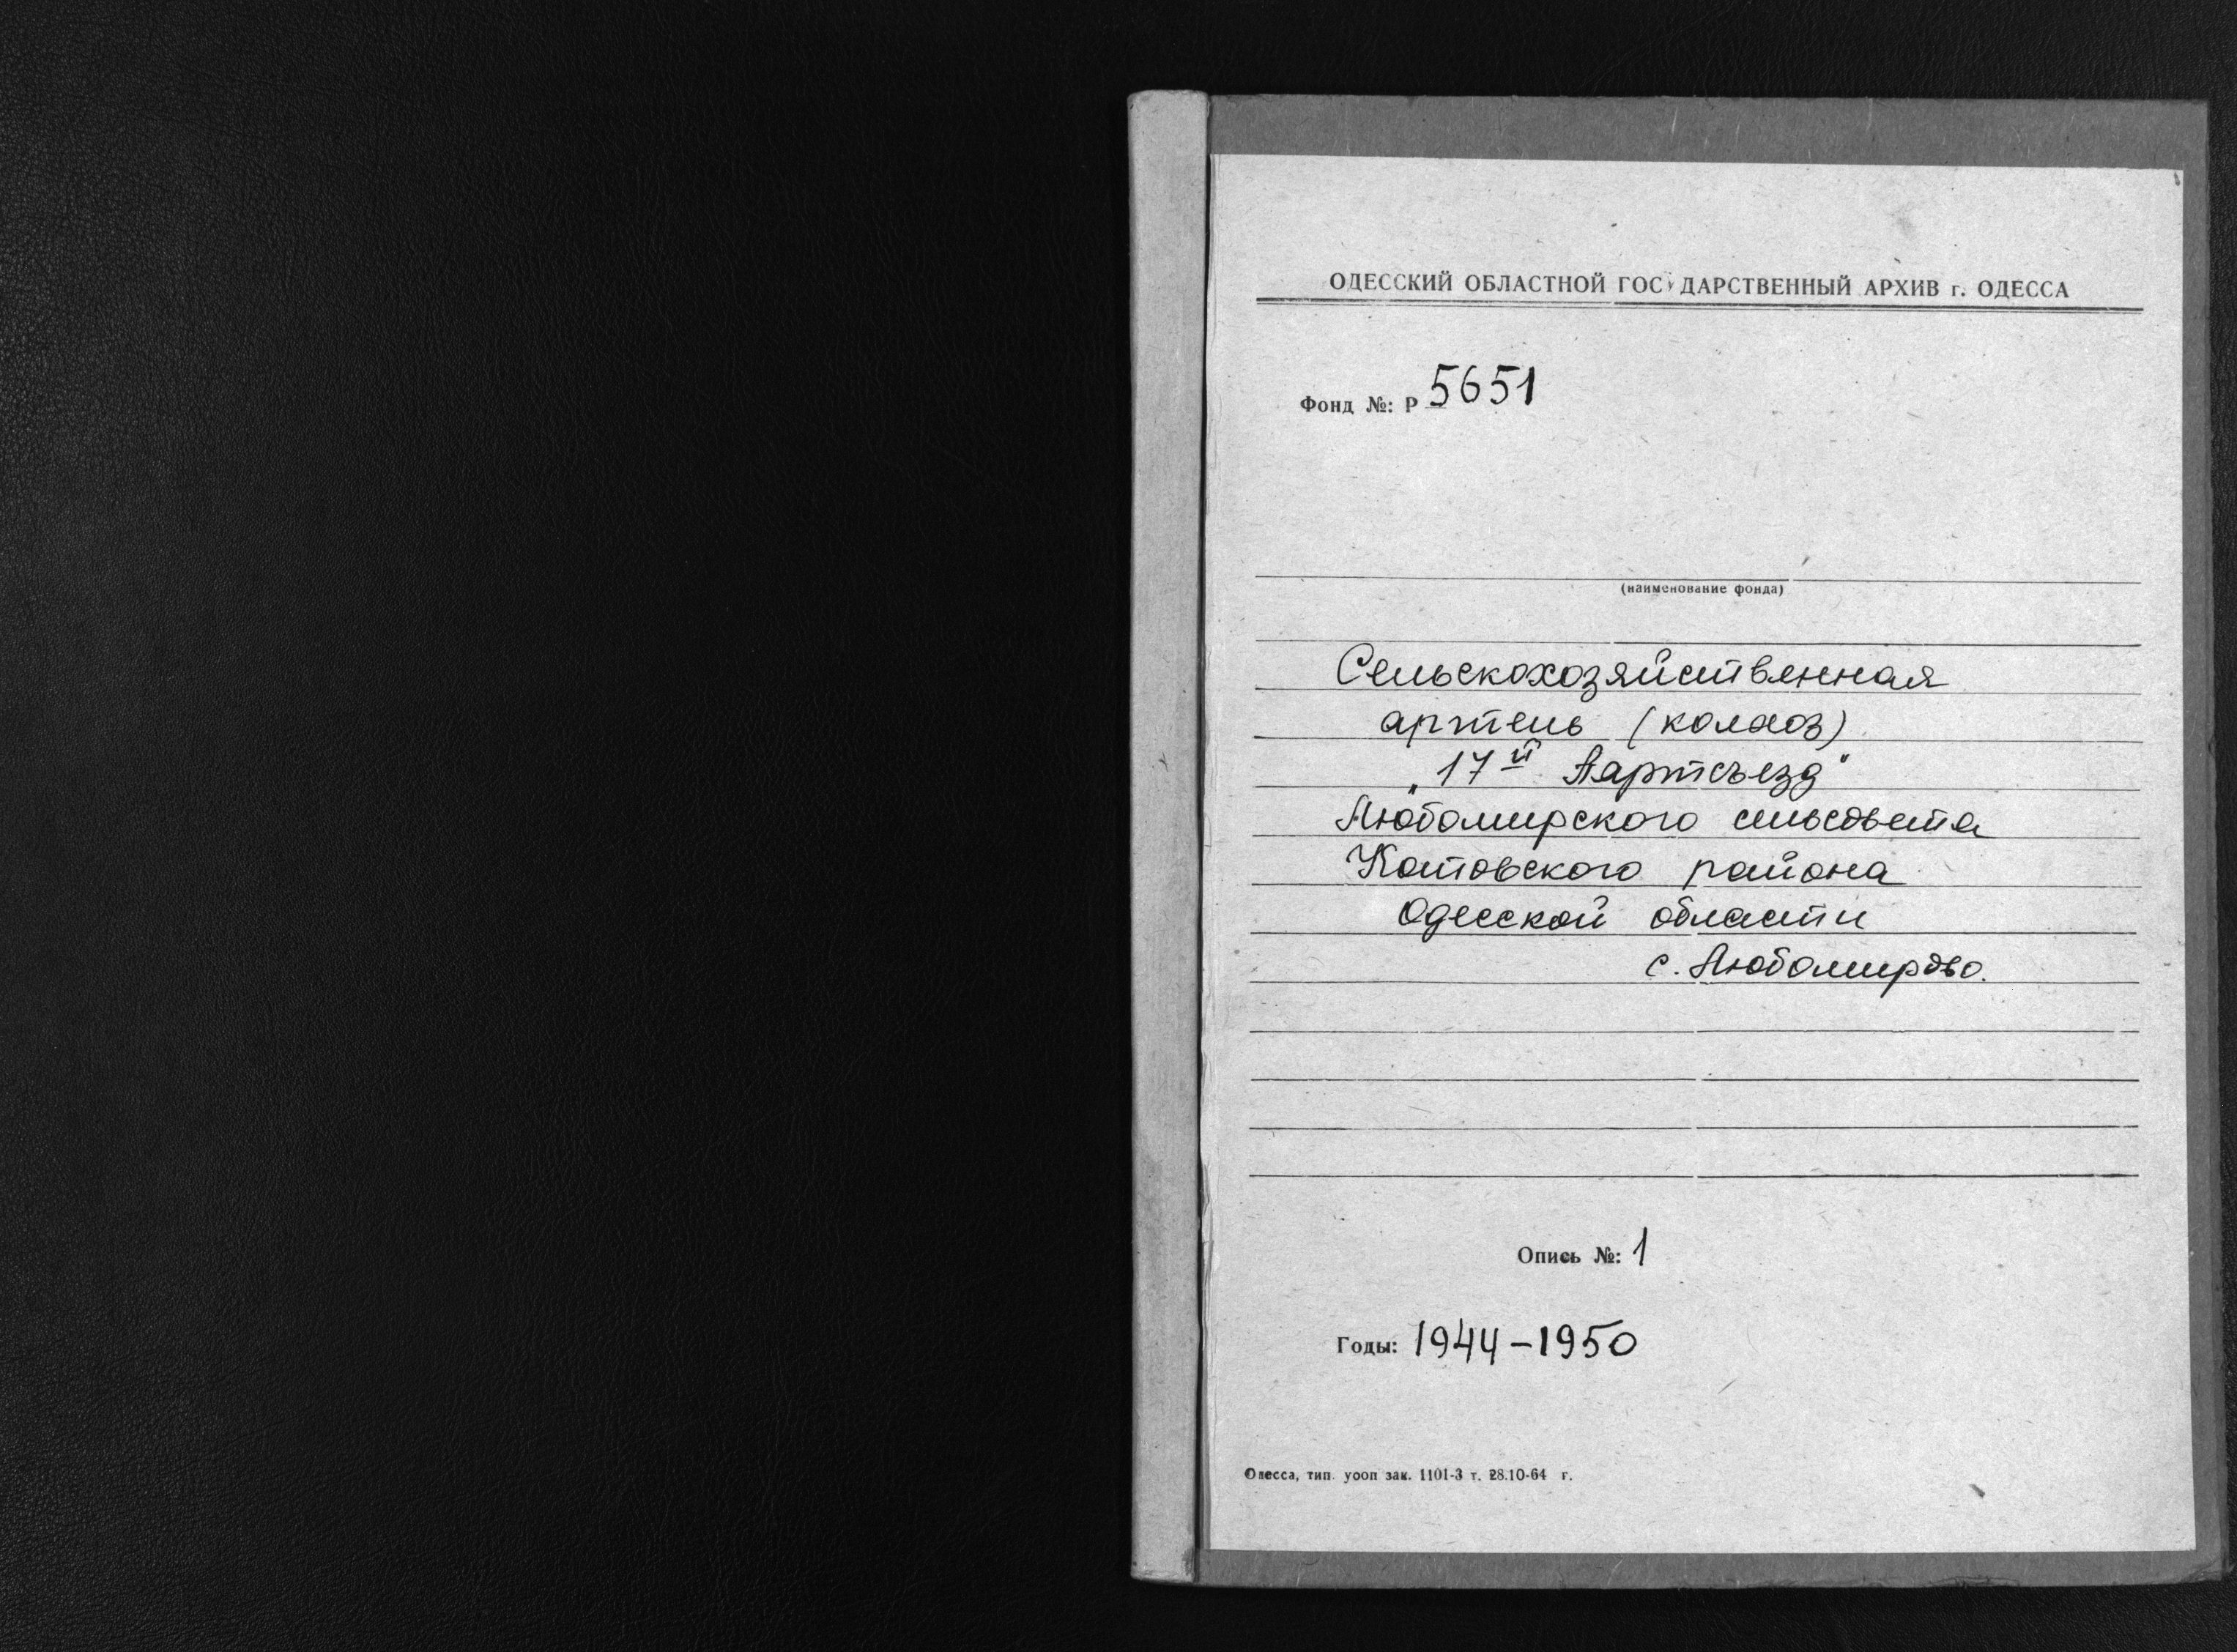 ОДЕССКИЙ ОБЛАСТНОЙ ГОСУДАРСТВЕННЫЙ АРХИВ г. ОДЕССА
Фонд №: Р 5651
(наименование фонда)
Сельскохозяйственная
артель (колхоз)
„17й Партсъезд"
Любомирского сельсовета
Котовского района
Одесской области
с. Любомирово.
Опись №: 1
Годы: 1944-1950
Одесса, тип. уооп зак. 1101-3 т. 28.10-64 г.